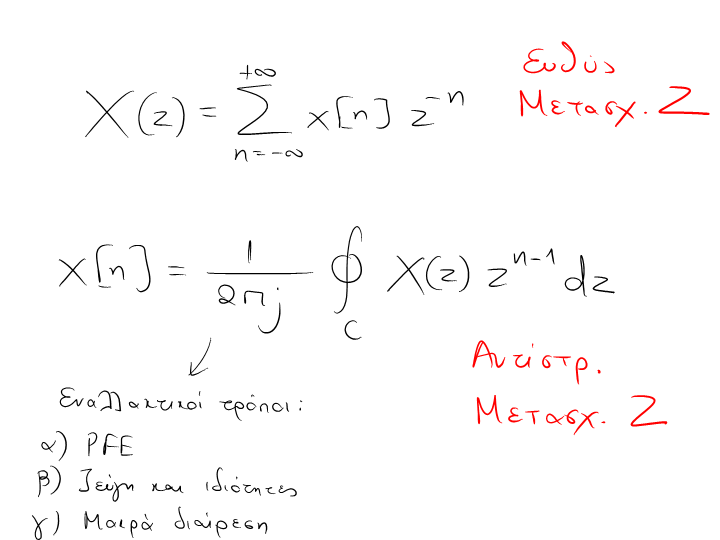 X(z) = \sum_{n=-\infty}^{+\infty} x[n] z^{-n}
Ευθύς
Μετασχ. Z
x[n] = \frac{1}{2πj} \oint_C X(z) z^{n-1} dz
Αντίστρ.
Μετασχ. Z
Εναλλακτικοί τρόποι:
α) PFE
β) Ζεύγη και ιδιότητες
γ) Μακρά διαίρεση